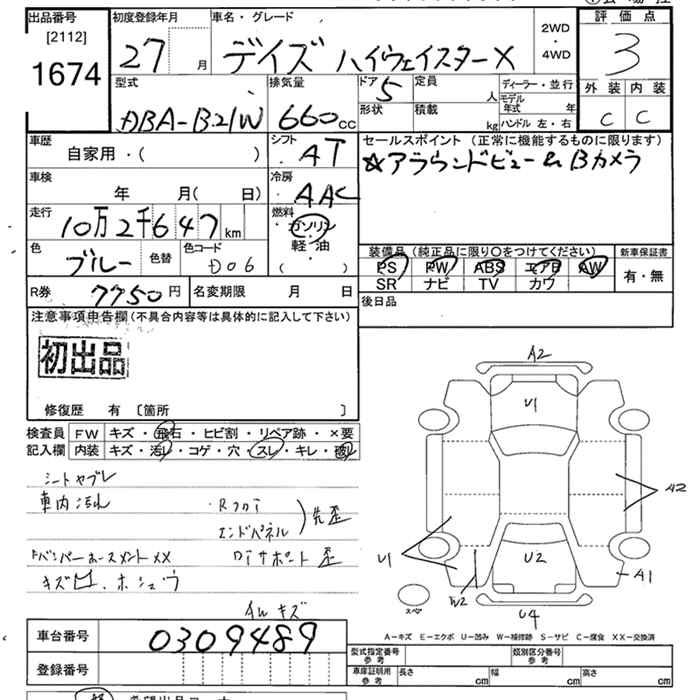 出品番号 初度登録年月 車名・グレード 評価点
[2112] 2WD
27 月 デイズ ハイウェイスターX 4WD 3
1674 外装 内装
型式 排気量 ドア 定員 ディーラー・並行
5 人 モデル年式 年
DBA-B21W 660cc 形状 積載 kg ハンドル 左・右 C C
車歴 シフト セールスポイント (正常に機能するものに限ります)
自家用・( ) AT ☆アラウンドビュー& Bカメラ
車検 冷房
年 月( 日) AAC
走行 燃料
10万2千647km ガソリン
軽・油
( )
色 色替 色コード 装備品 (純正品に限り○をつけてください) 新車保証書
ブルー D06 PS PW ABS エアB AW 有・無
SR ナビ TV カワ
R券 7750円 名変期限 月 日 後日品
注意事項申告欄 (不具合内容等は具体的に記入して下さい)
初出品
修復歴 有 〔箇所 〕
検査員 FW キズ・飛石・ヒビ割・リペア跡・×要
記入欄 内装 キズ・汚レ・コゲ・穴・スレ・キレ・破レ
シートヤブレ
車内汚れ
・Rフロア
エンドパネル
先歪
キズ凹、ホシュウ
AWキズ
A2
U1
A2
U1
U2
A1
U4
スペア
A－キズ E－エクボ U－凹み W－補修跡 S－サビ C－腐食 XX－交換済
車台番号 0309489
型式指定番号 参考 類別区分番号 参考
登録番号 車庫証明用 参考 長さ cm 幅 cm 高さ cm